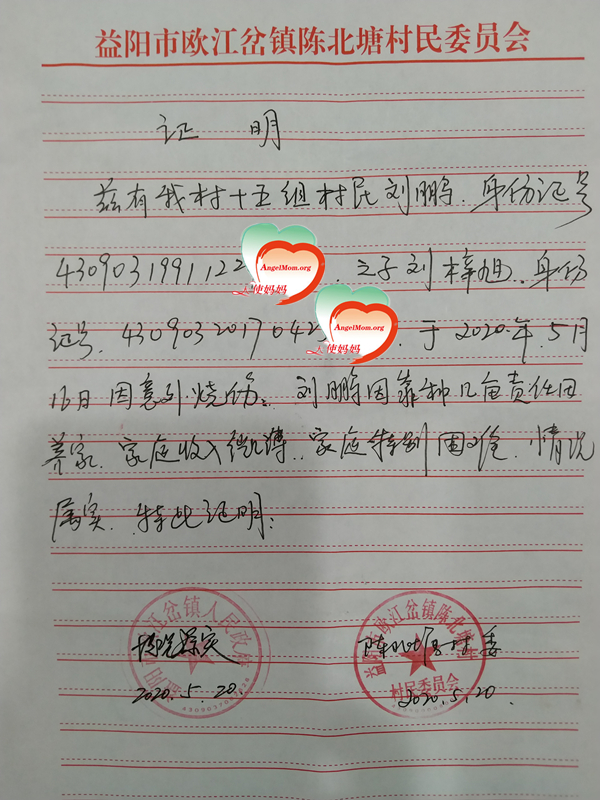 益阳市欧江岔镇陈北塘村民委员会
证 明
兹有我村十五组村民刘鹏、身份证号
4309031991122 AngelMom.org 天使妈妈 、之子刘梓旭、身份
证号、4309032017042 AngelMom.org 天使妈妈 、于2020年5月
16日因意外烧伤、刘鹏因靠种几亩责任田
养家、家庭收入微薄、家庭特别困难、情况
属实、特此证明:
欧江岔镇人民政府
情况属实
2020.5.20.
益阳市欧江岔镇陈北塘村
村民委员会
陈北塘村委
2020.5.20.